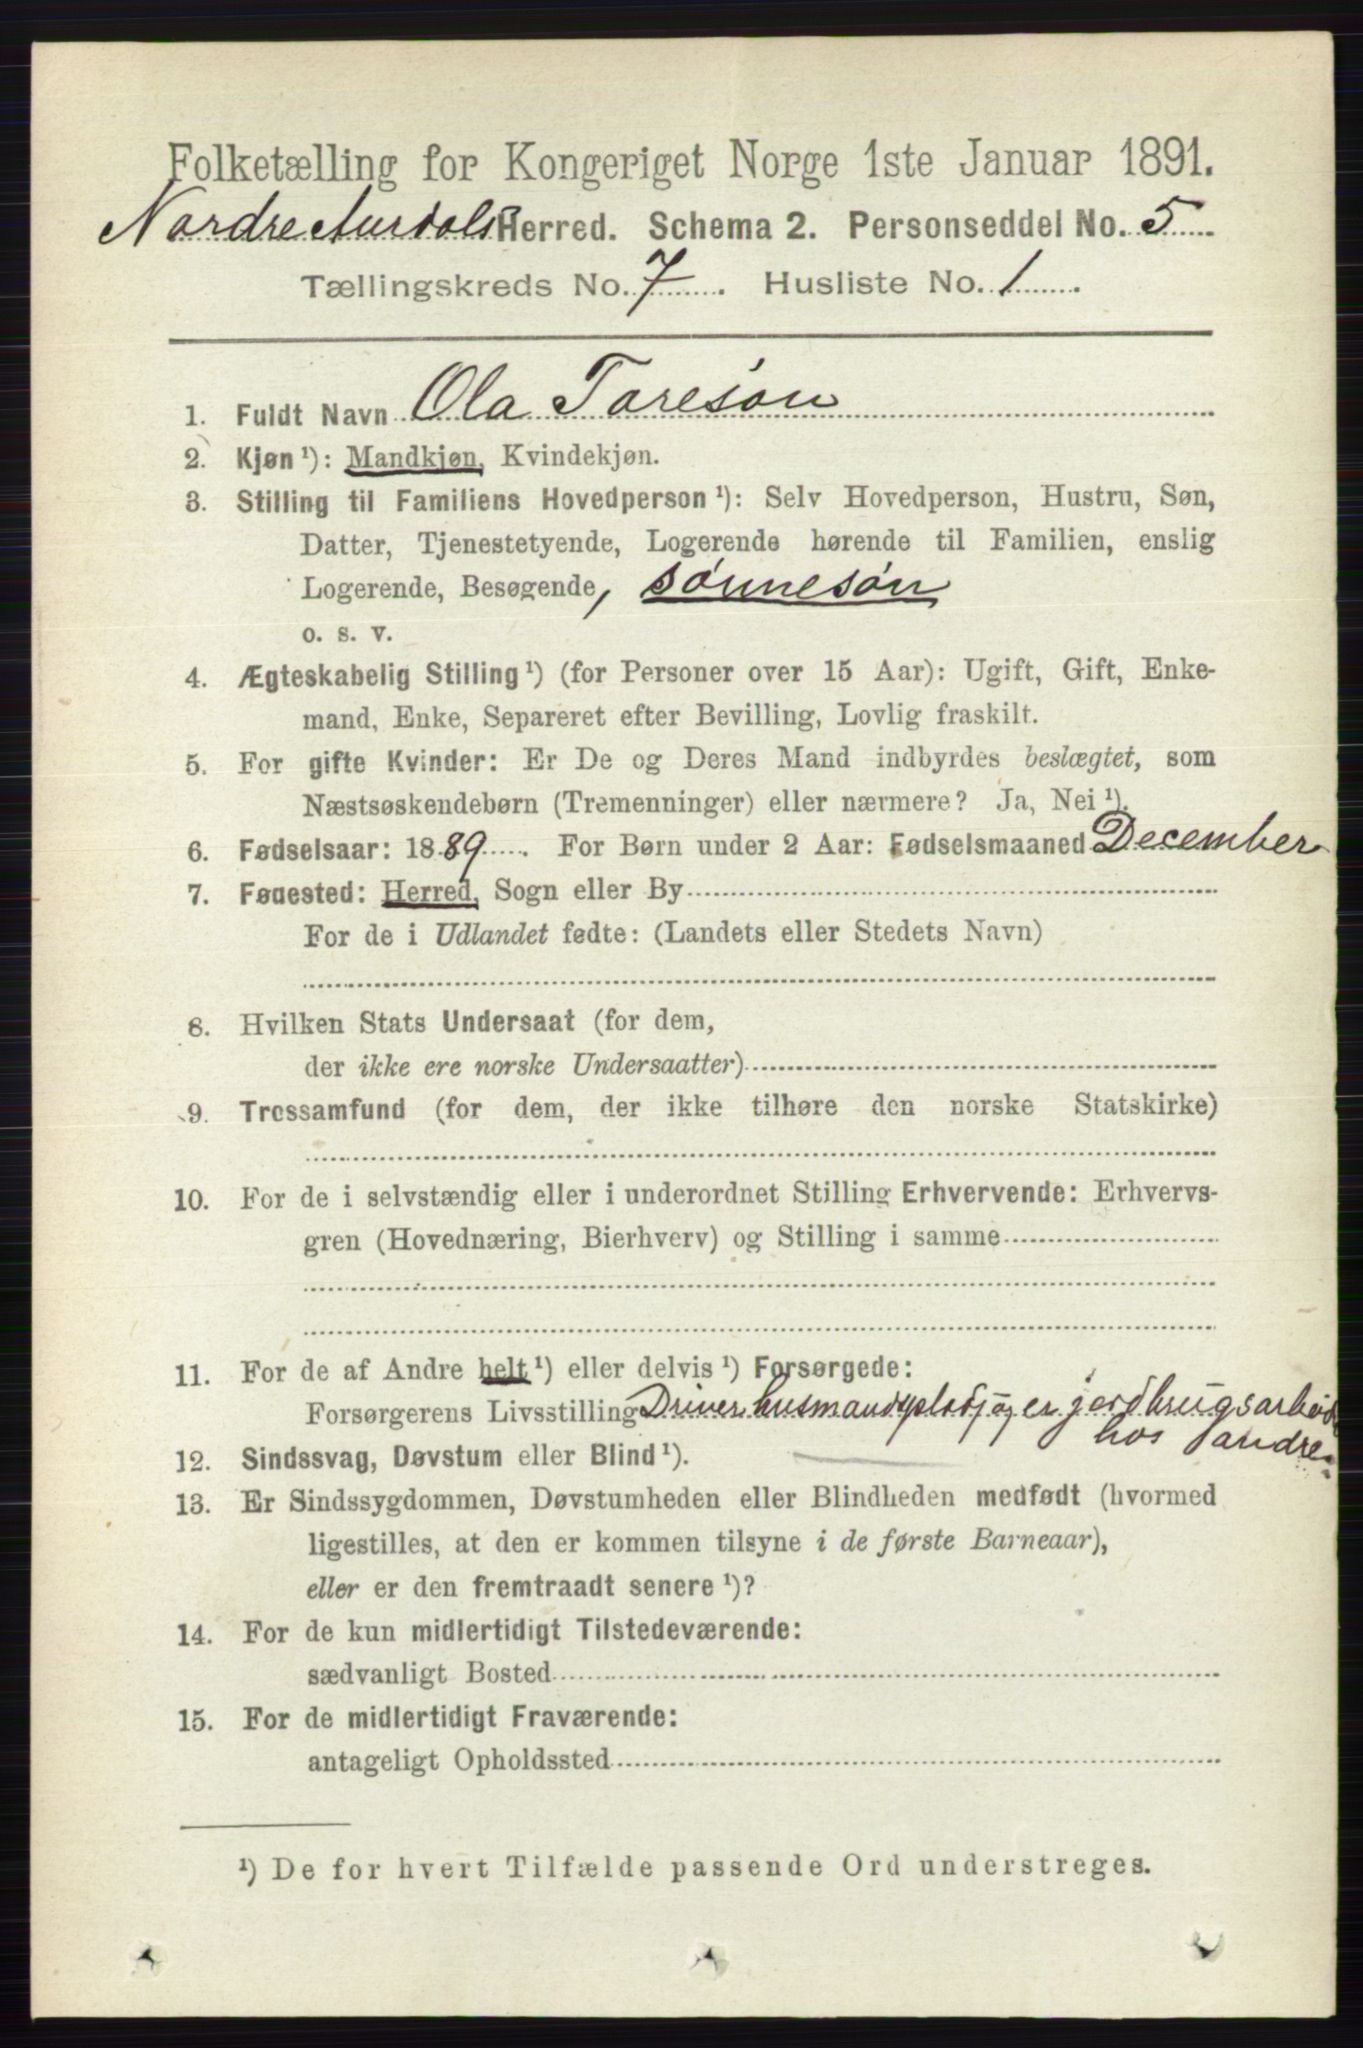 Folketælling for Kongeriget Norge 1ste Januar 1891.
Nordre Aurdals Herred. Schema 2. Personseddel No. 5
Tællingskreds No. 7. Husliste No. 1.
1. Fuldt Navn Ola Toresøn
2. Kjøn ¹): Mandkjøn, Kvindekjøn.
3. Stilling til Familiens Hovedperson ¹): Selv Hovedperson, Hustru, Søn,
Datter, Tjenestetyende, Logerende hørende til Familien, enslig
Logerende, Besøgende, sønnesøn
o. s. v.
4. Ægteskabelig Stilling ¹) (for Personer over 15 Aar): Ugift, Gift, Enke-
mand, Enke, Separeret efter Bevilling, Lovlig fraskilt.
5. For gifte Kvinder: Er De og Deres Mand indbyrdes beslægtet, som
Næstsøskendebørn (Tremenninger) eller nærmere? Ja, Nei ¹).
6. Fødselsaar: 1889. For Børn under 2 Aar: Fødselsmaaned December
7. Fødested: Herred, Sogn eller By
For de i Udlandet fødte: (Landets eller Stedets Navn)
8. Hvilken Stats Undersaat (for dem,
der ikke ere norske Undersaatter)
9. Trossamfund (for dem, der ikke tilhøre den norske Statskirke)
10. For de i selvstændig eller i underordnet Stilling Erhvervende: Erhvervs-
gren (Hovednæring, Bierhverv) og Stilling i samme
11. For de af Andre helt ¹) eller delvis ¹) Forsørgede:
Forsørgerens Livsstilling Driver husmandsplads, og er jordbrugsarbeider
hos andre.
12. Sindssvag, Døvstum eller Blind ¹).
13. Er Sindssygdommen, Døvstumheden eller Blindheden medfødt (hvormed
ligestilles, at den er kommen tilsyne i de første Barneaar),
eller er den fremtraadt senere ¹)?
14. For de kun midlertidigt Tilstedeværende:
sædvanligt Bosted
15. For de midlertidigt Fraværende:
antageligt Opholdssted
¹) De for hvert Tilfælde passende Ord understreges.